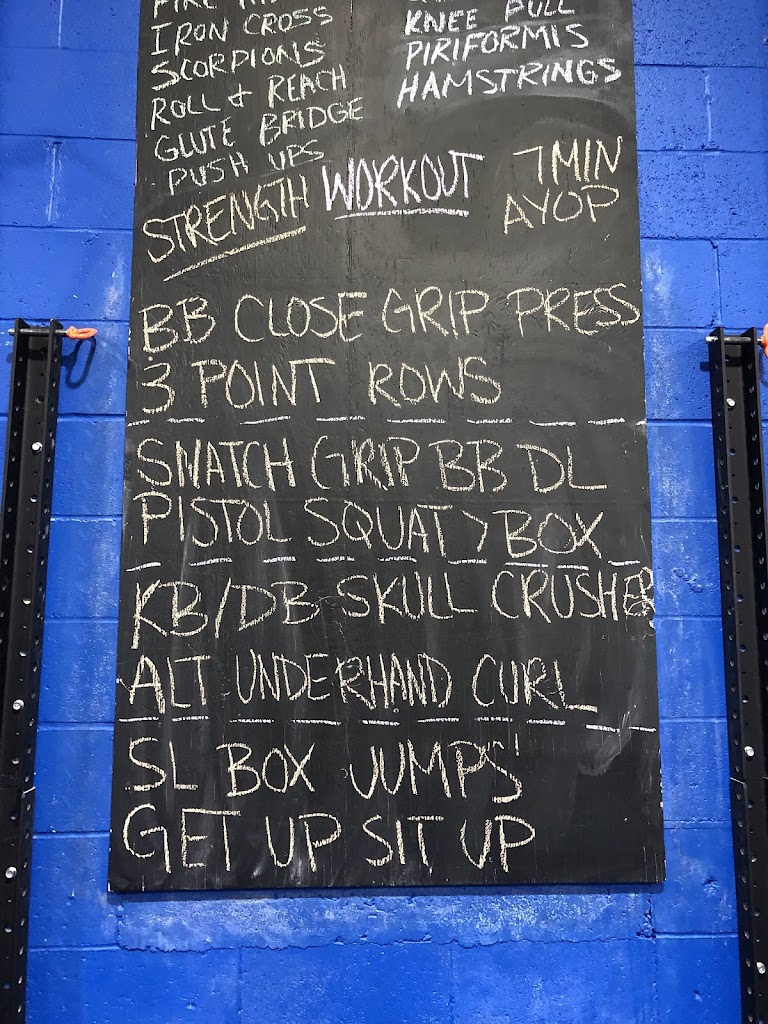 IRON CROSS
SCORPIONS
ROLL & REACH
GLUTE BRIDGE
PUSH UPS
KNEE PULL
PIRIFORMIS
HAMSTRINGS
STRENGTH WORKOUT 7 MIN
AYOP
BB CLOSE GRIP PRESS
3 POINT ROWS
SNATCH GRIP BB DL
PISTOL SQUAT > BOX
KB/DB SKULL CRUSHER
ALT UNDERHAND CURL
SL BOX JUMPS
GET UP SIT UP